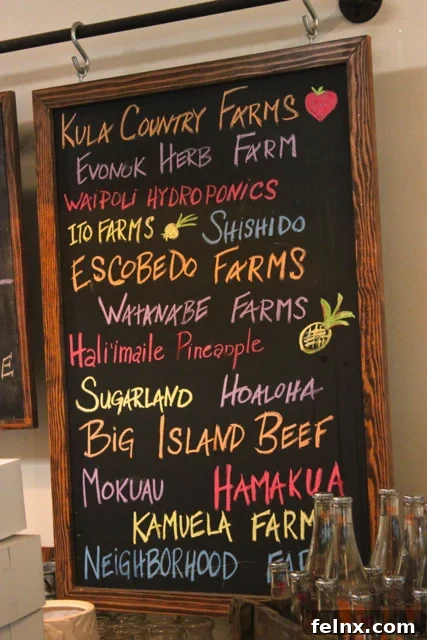 KULA COUNTRY FARMS
EVONUK HERB FARM
WAIPOLI HYDROPONICS
ITO FARMS SHISHIDO
ESCOBEDO FARMS
WATANABE FARMS
Hali'imaile Pineapple
SUGARLAND HOALOHA
BIG ISLAND BEEF
MOKUAU HAMAKUA
KAMUELA FARM
NEIGHBORHOOD
E
felnx.com